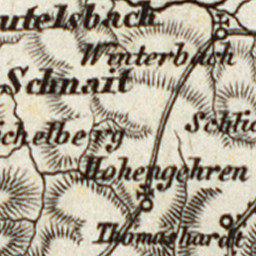 utelsbach
Winterbach
Schnait
Schlic
ichelberg
Hohengehren
Thomashardt